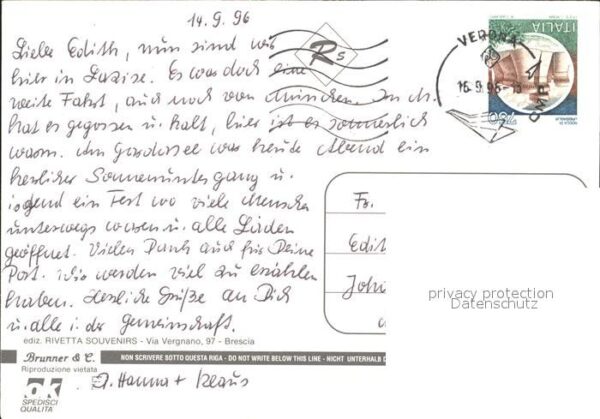 14.9.96
Liebe Edith, nun sind wir
hier in Lazise. Es war doch eine
weite Fahrt, auch noch von München. In M.
hat es gegossen u. kalt, hier ist es sommerlich
warm. Am Gardasee war heute Abend ein
herrlicher Sonnenuntergang u.
irgend ein Fest wo viele Menschen
unterwegs waren u. alle Läden
geöffnet. Vielen Dank auch für Deine
Post. Wir werden viel zu erzählen
haben. Herzliche Grüße an Dich
u. alle i. der Gemeinschaft.
Hanna + Klaus
Rs
VERONA
16.9.96
ITALIA
750
Fr.
Edith
Joh
privacy protection
Datenschutz
ediz. RIVETTA SOUVENIRS - Via Vergnano, 97 - Brescia
Brunner & C.
Riproduzione vietata
NON SCRIVERE SOTTO QUESTA RIGA - DO NOT WRITE BELOW THIS LINE - NICHT UNTERHALB D
ok
SPEDISCI
QUALITÀ